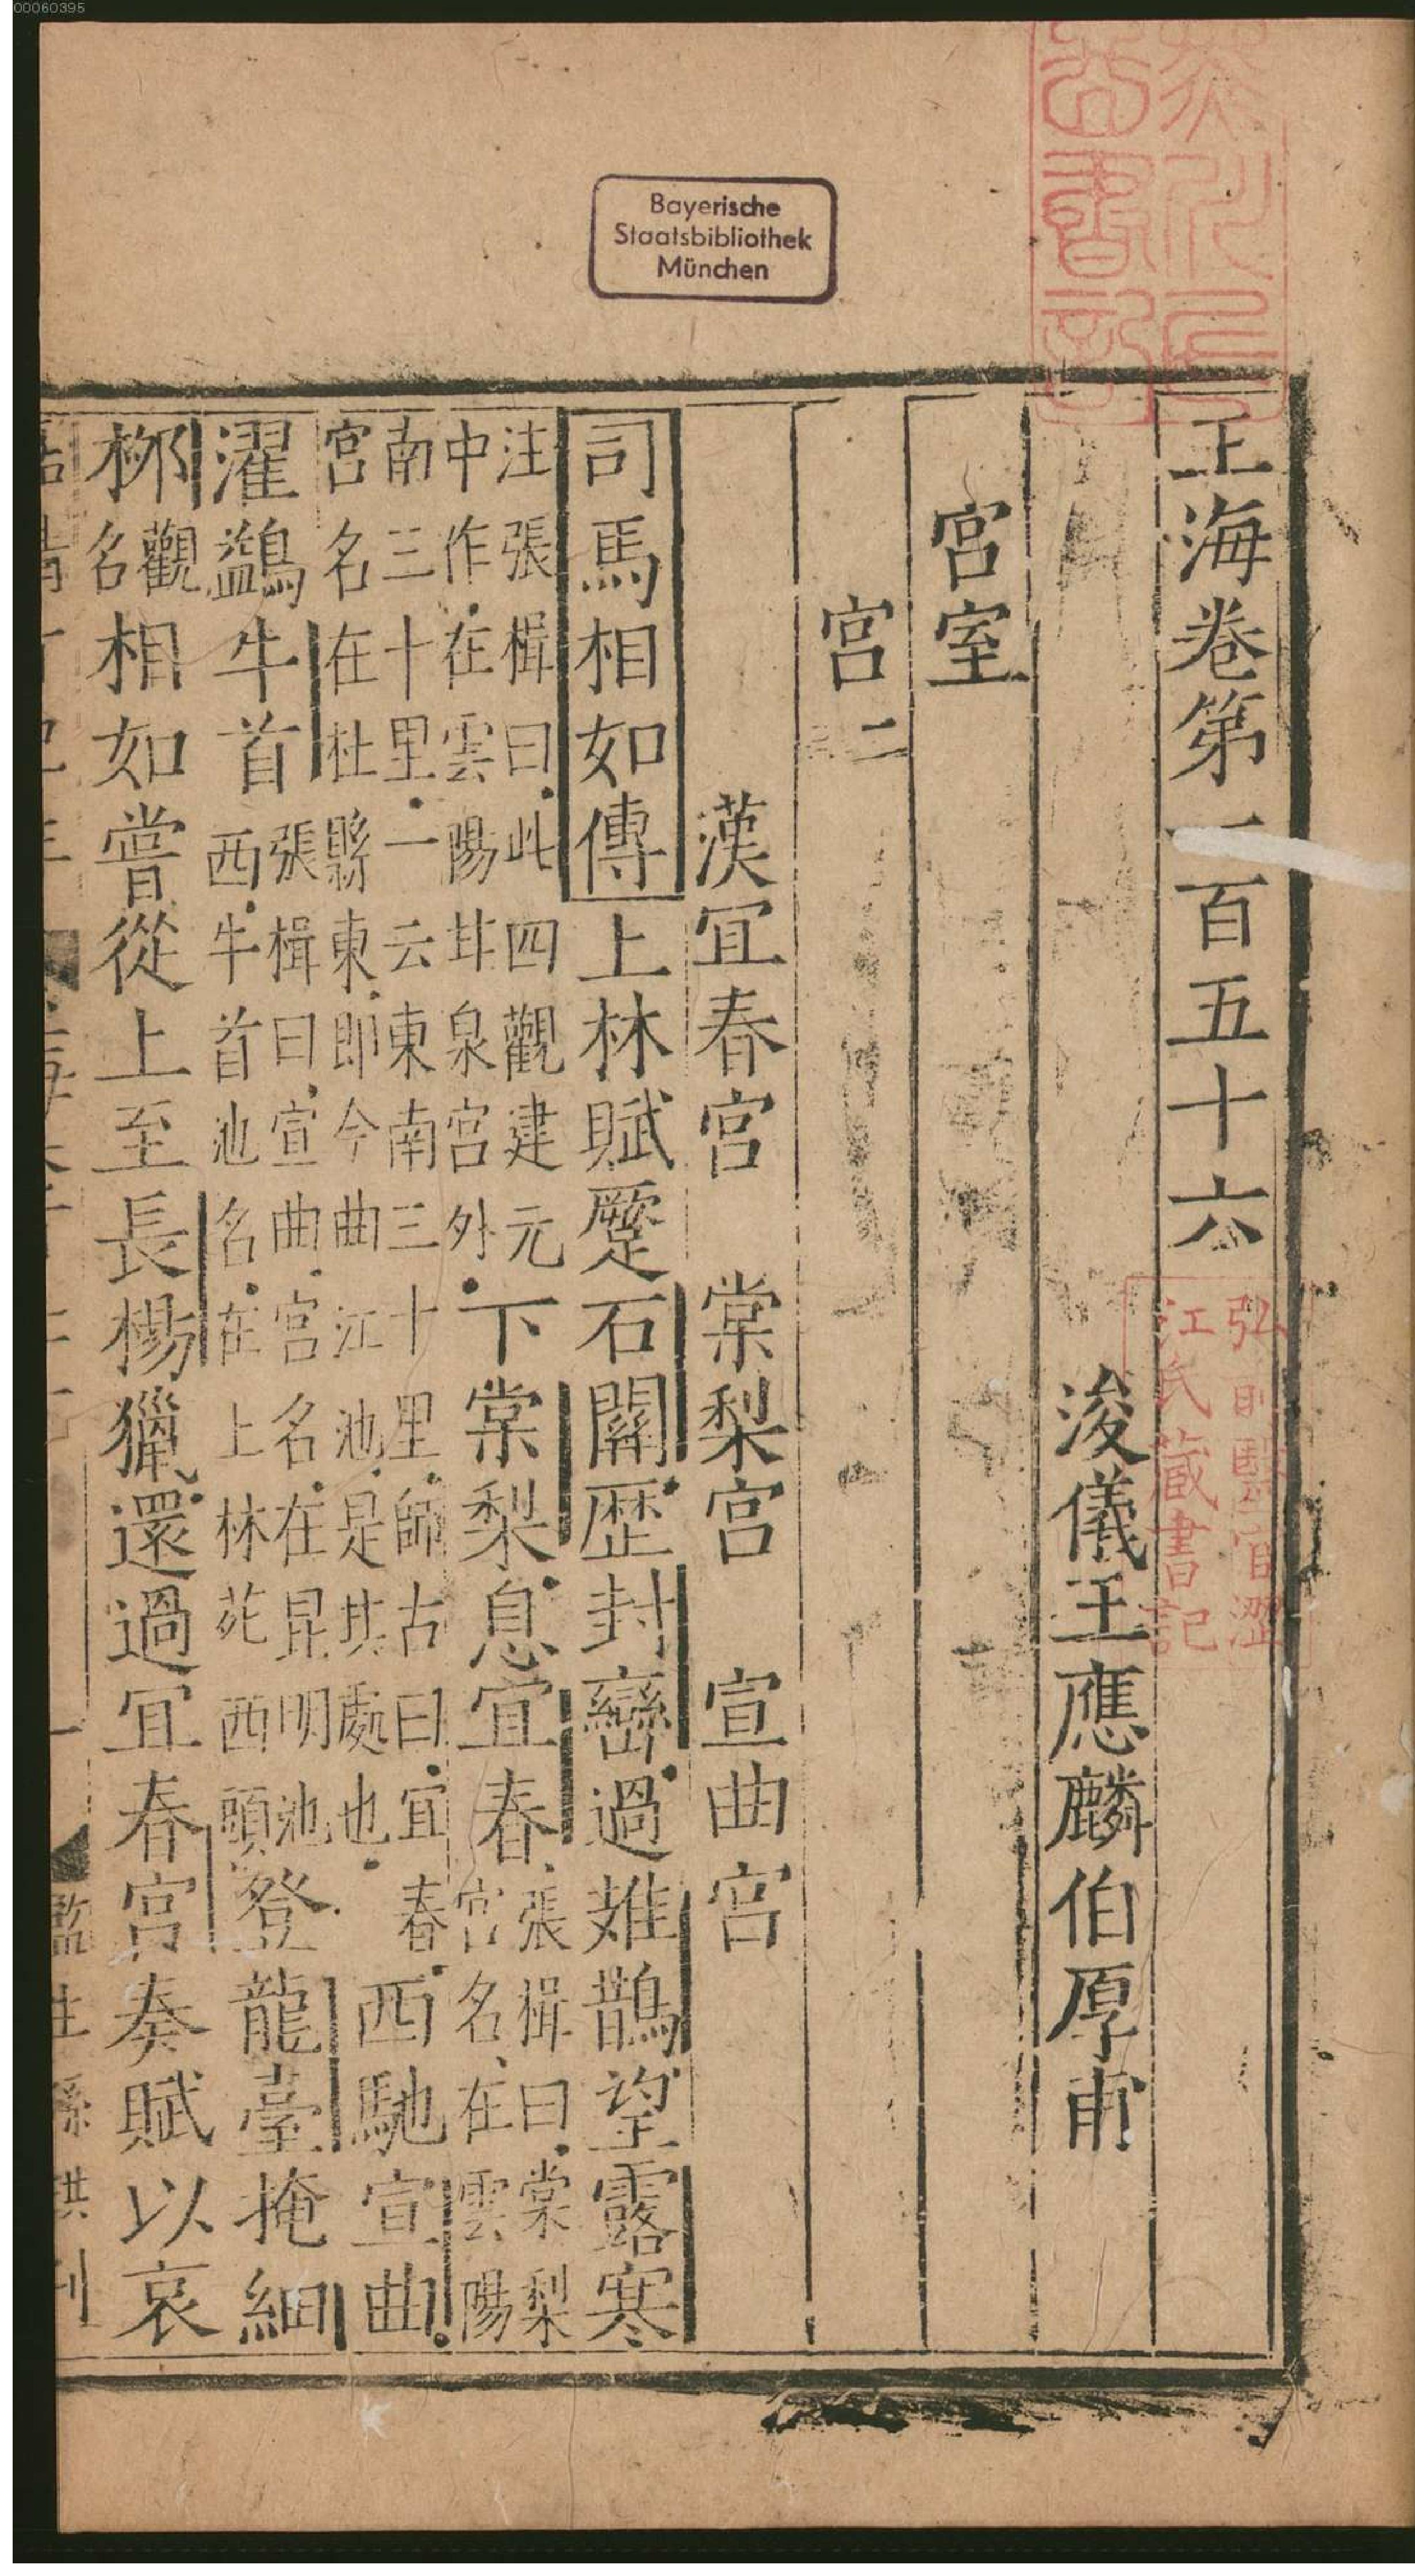 00060395
Bayerische
Staatsbibliothek
München
玉海卷第一百五十六
浚儀王應麟伯厚甫
宮室
宮二
漢宜春宮 棠梨宮 宣曲宮
司馬相如傳上林賦蹷石關歴封巒過䧿鵲望露寒
注張楫曰此四觀建元
中作在雲陽甘泉宮外
下棠梨息宜春
張楫曰棠梨
宮名在雲陽
南三十里一云東南三十里師古曰宜春
宮名在杜縣東即今曲江池是其處也
西馳宣曲
濯鷁牛首
張楫曰宣曲宮名在昆明池
西牛首池名在上林苑西頭
登龍臺掩細
桺
觀
名
相如嘗從上至長楊獵還過宜春宮奏賦以哀
江氏藏書記